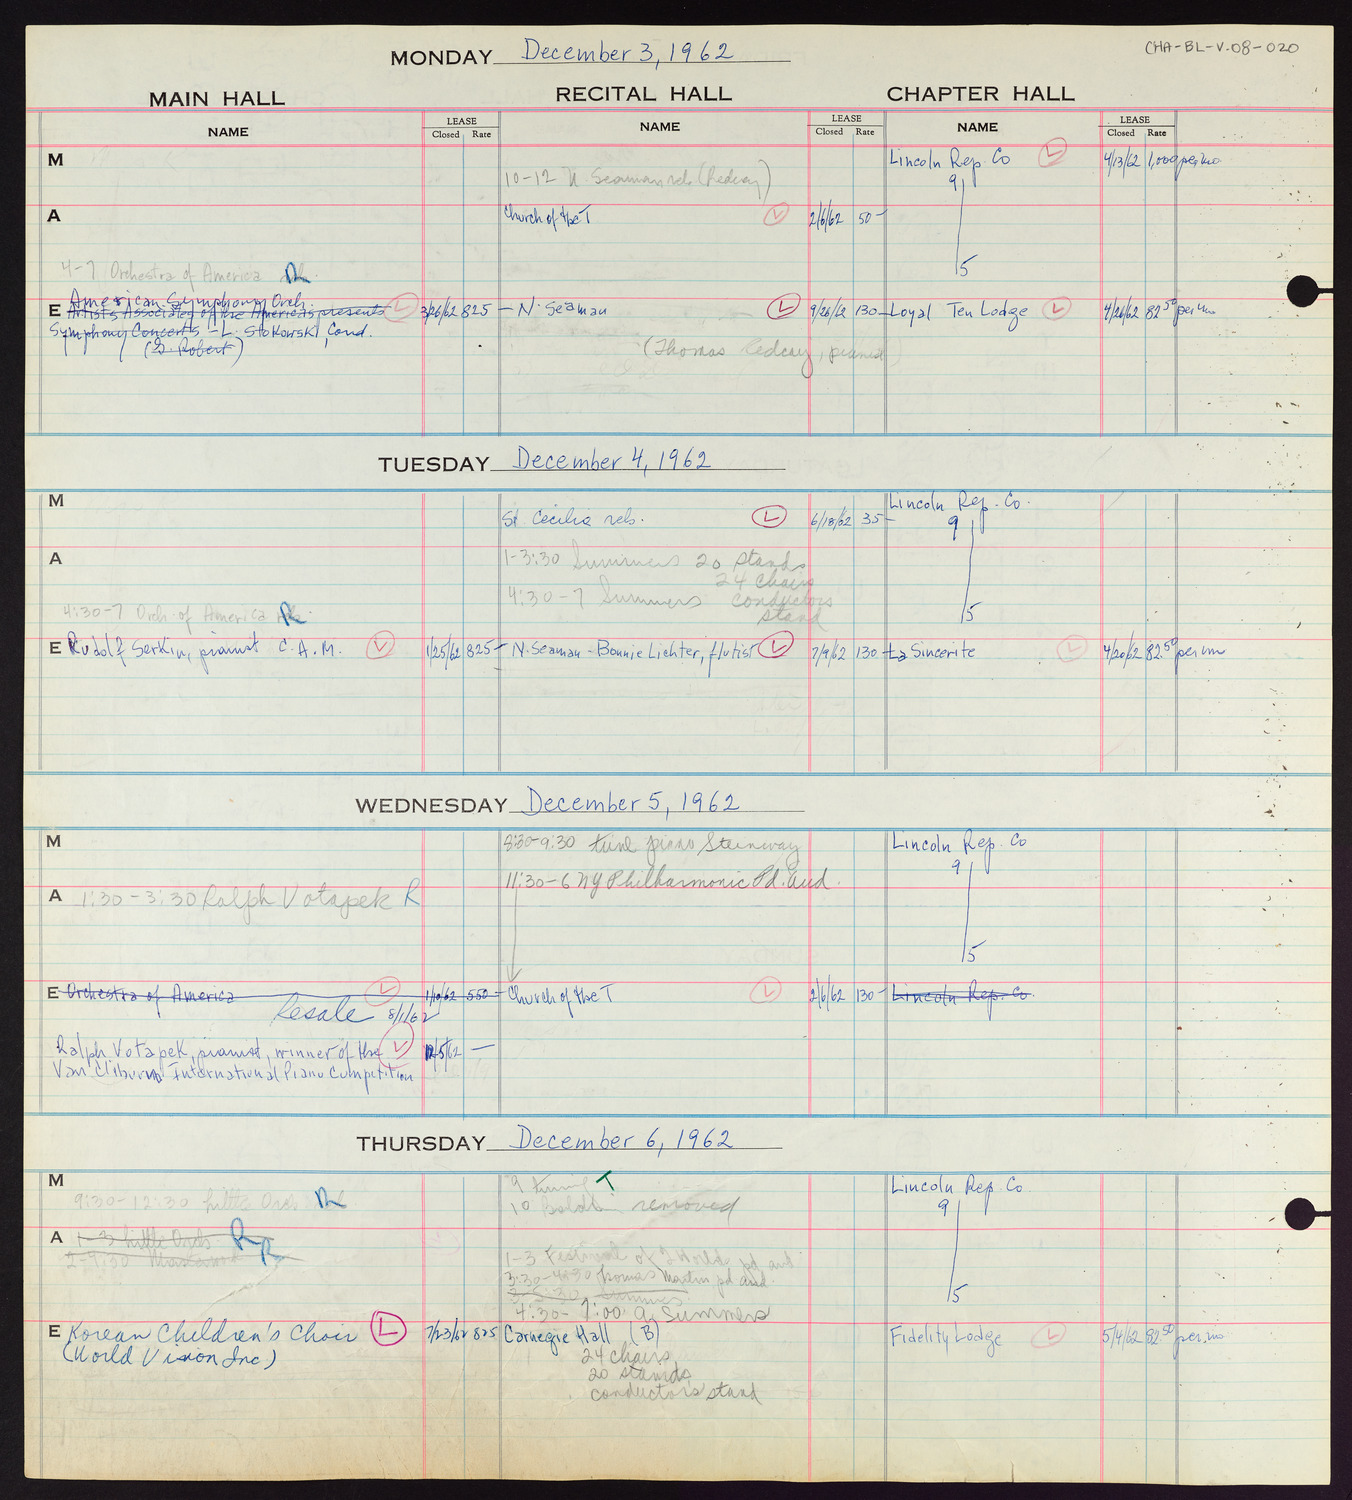 CHA-BL-V.08-020
MONDAY December 3, 1962
MAIN HALL
RECITAL HALL
CHAPTER HALL
NAME
LEASE
Closed Rate
NAME
LEASE
Closed Rate
NAME
LEASE
Closed Rate
M
10-12 N. Seaman reh (Redcay)
Lincoln Rep. Co L 4/13/62 1,000 per mo
9
5
A
Church of the T L 2/6/62 50-
4-7 Orchestra of America R
American Symphony Orch.
E Artists Associates of the Americas presents L 3/26/62 825-
Symphony Concerts - L. Stokowski, Cond.
(G. Robert)
N. Seaman L 9/26/62 130-
(Thomas Redcay, pianist)
Loyal Ten Lodge L 4/26/62 82.50 per mo
TUESDAY December 4, 1962
M
St Cecilia reh. L 6/18/62 35-
Lincoln Rep. Co.
9
5
A
1-3:30 Summers 20 stands
24 chairs
4:30-7 Summers conductors
stand
4:30-7 Orch of America R
E Rudolf Serkin, pianist C.A.M. L 1/25/62 825-
N. Seaman - Bonnie Lichter, flutist L 7/9/62 130-
La Sincerite L 4/20/62 82.50 per mo
WEDNESDAY December 5, 1962
M
8:30-9:30 tune piano Steinway
11:30-6 NY Philharmonic Pd. Aud.
Lincoln Rep. Co
9
5
A 1:30-3:30 Ralph Votapek R
E Orchestra of America L 1/10/62 550-
Resale 8/1/62
Ralph Votapek, pianist, winner of the L 12/5/62 —
Van Cliburn International Piano Competition
Church of the T L 2/6/62 130-
Lincoln Rep. Co.
THURSDAY December 6, 1962
M
9:30-12:30 Little Orch R
9 tuning T
10 removed
Lincoln Rep. Co
9
5
A 1-3 Little Orch R
R
1-3 Festival of 2 Worlds pd aud
3:30-4:30 Thomas Martin pd aud.
Summers
4:30-7:00 Summers
E Korean Children's Choir L 7/23/62 825
(World Vision Inc)
Carnegie Hall (B)
24 chairs
20 stands
conductors stand
Fidelity Lodge L 5/4/62 82.50 per mo